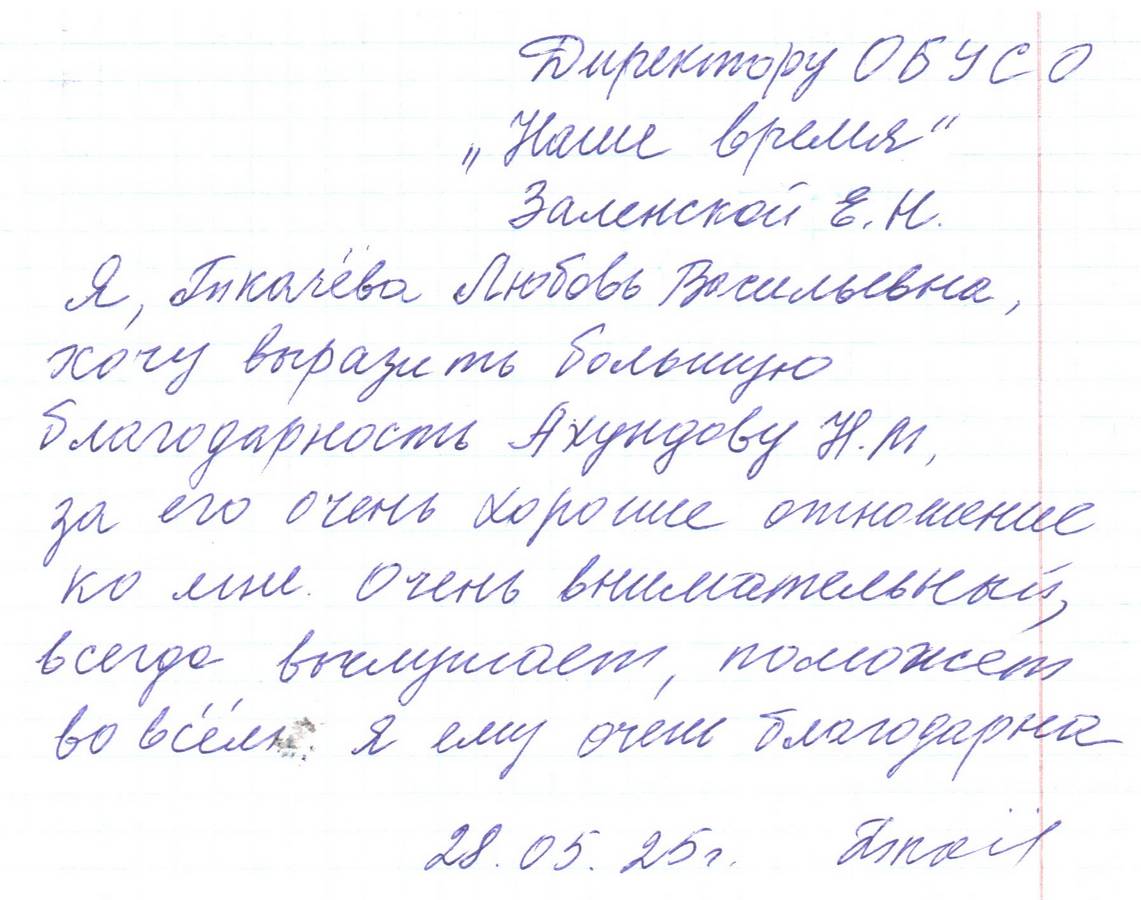 Директору ОБУСО
„Наше время“
Заленской Е.Н.
Я, Ткачёва Любовь Васильевна,
хочу выразить большую
благодарность Ахундову Н.М,
за его очень хороше отношение
ко мне. Очень внимательный,
всегда выслушает, поможет
во всём. Я ему очень благодарна
28.05.25г.